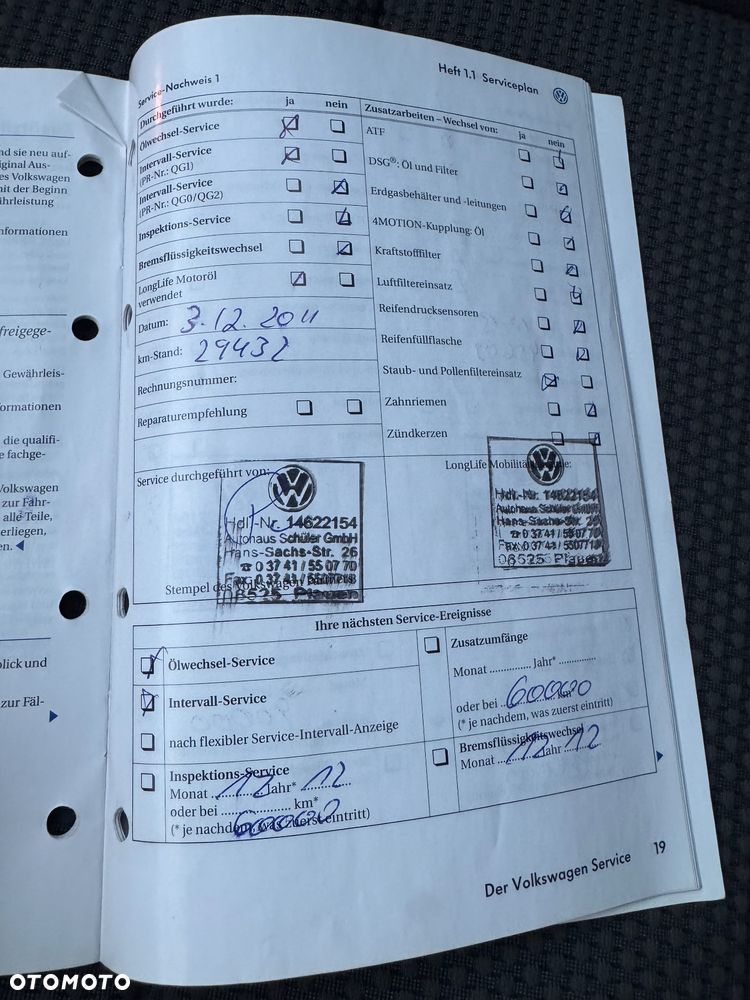 nd sie neu auf-
iginal Aus-
es Volkswagen
mit der Beginn
ährleistung
nformationen
freigege-
Gewährleis-
formationen
die qualifi-
e fachge-
Volkswagen
zur Fahr-
alle Teile,
erliegen,
en.
blick und
zur Fäl-
Heft 1.1 Serviceplan
Service-Nachweis 1
Durchgeführt wurde: ja nein
Ölwechsel-Service
Intervall-Service
(PR-Nr.: QG1)
Intervall-Service
(PR-Nr.: QG0/QG2)
Inspektions-Service
Bremsflüssigkeitswechsel
LongLife Motoröl
verwendet
Datum: 3.12.2011
km-Stand: 29432
Rechnungsnummer:
Reparaturempfehlung
Zusatzarbeiten – Wechsel von: ja nein
ATF
DSG®: Öl und Filter
Erdgasbehälter und -leitungen
4MOTION-Kupplung: Öl
Kraftstofffilter
Luftfiltereinsatz
Reifendrucksensoren
Reifenfüllflasche
Staub- und Pollenfiltereinsatz
Zahnriemen
Zündkerzen
Service durchgeführt von:
Hdl.-Nr. 14622154
Autohaus Schüler GmbH
Hans-Sachs-Str. 26
☎ 0 37 41 / 55 07 70
Fax 0 37 41 /
Stempel des Volkswagen
08525 Plauen
LongLife Mobilitätsgarantie:
Hdl.-Nr. 14622154
Autohaus Schüler GmbH
Hans-Sachs-Str. 26
☎ 0 37 41 / 55 07 70
Fax 0 37 41 / 5507718
08525 Plauen
Ihre nächsten Service-Ereignisse
Ölwechsel-Service
Intervall-Service
nach flexibler Service-Intervall-Anzeige
Inspektions-Service
Monat 12 Jahr* 12
oder bei .................... km*
60000
(* je nachdem, was zuerst eintritt)
Zusatzumfänge
Monat ............. Jahr* .............
oder bei 60000 km*
(* je nachdem, was zuerst eintritt)
Bremsflüssigkeitswechsel
Monat 12 Jahr 12
Der Volkswagen Service 19
OTOMOTO